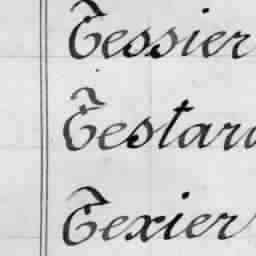 Tessier
Testard
Texier